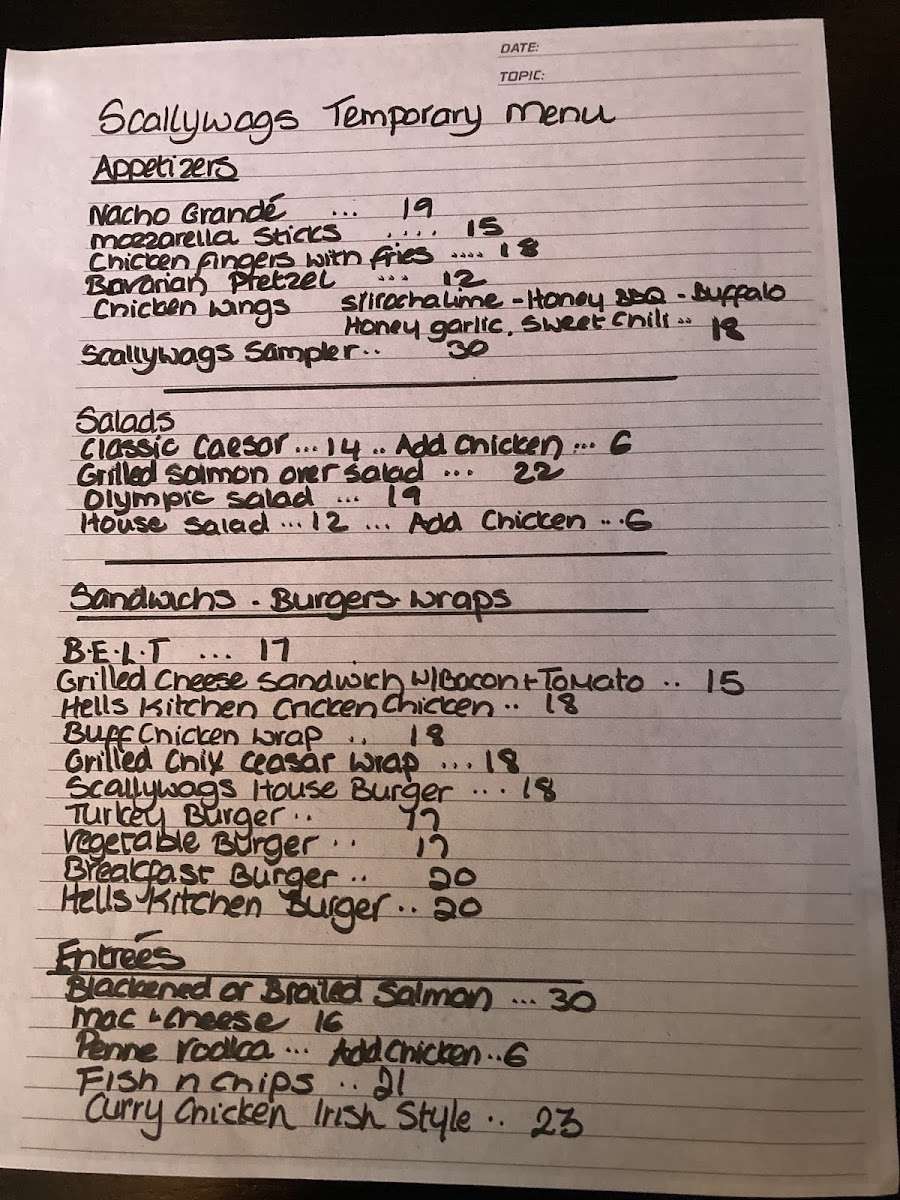 DATE:
TOPIC:
Scallywags Temporary Menu
Appetizers
Nacho Grandé ... 19
Mozzarella Sticks .... 15
Chicken fingers with fries .... 18
Bavarian Pretzel ... 12
Chicken Wings Srirachalime - Honey BBQ - Buffalo
Honey garlic, Sweet Chili .. 18
Scallywags Sampler.. 30
Salads
Classic Caesar ... 14 .. Add Chicken ... 6
Grilled Salmon over Salad ... 22
Olympic Salad ... 19
House Salad ... 12 ... Add Chicken ... 6
Sandwichs - Burgers - Wraps
B.E.L.T ... 17
Grilled Cheese Sandwich W/Bacon + Tomato .. 15
Hells Kitchen Cricken Chicken .. 18
Buff Chicken Wrap .. 18
Grilled Chix Ceasar Wrap ... 18
Scallywags House Burger ... 18
Turkey Burger .. 17
Vegetable Burger .. 17
Breakfast Burger .. 20
Hells Kitchen Burger .. 20
Entreés
Blackened or Brailed Salmon ... 30
Mac & Cheese 16
Penne Vodka ... Add Chicken .. 6
Fish n Chips .. 21
Curry Chicken Irish Style .. 23